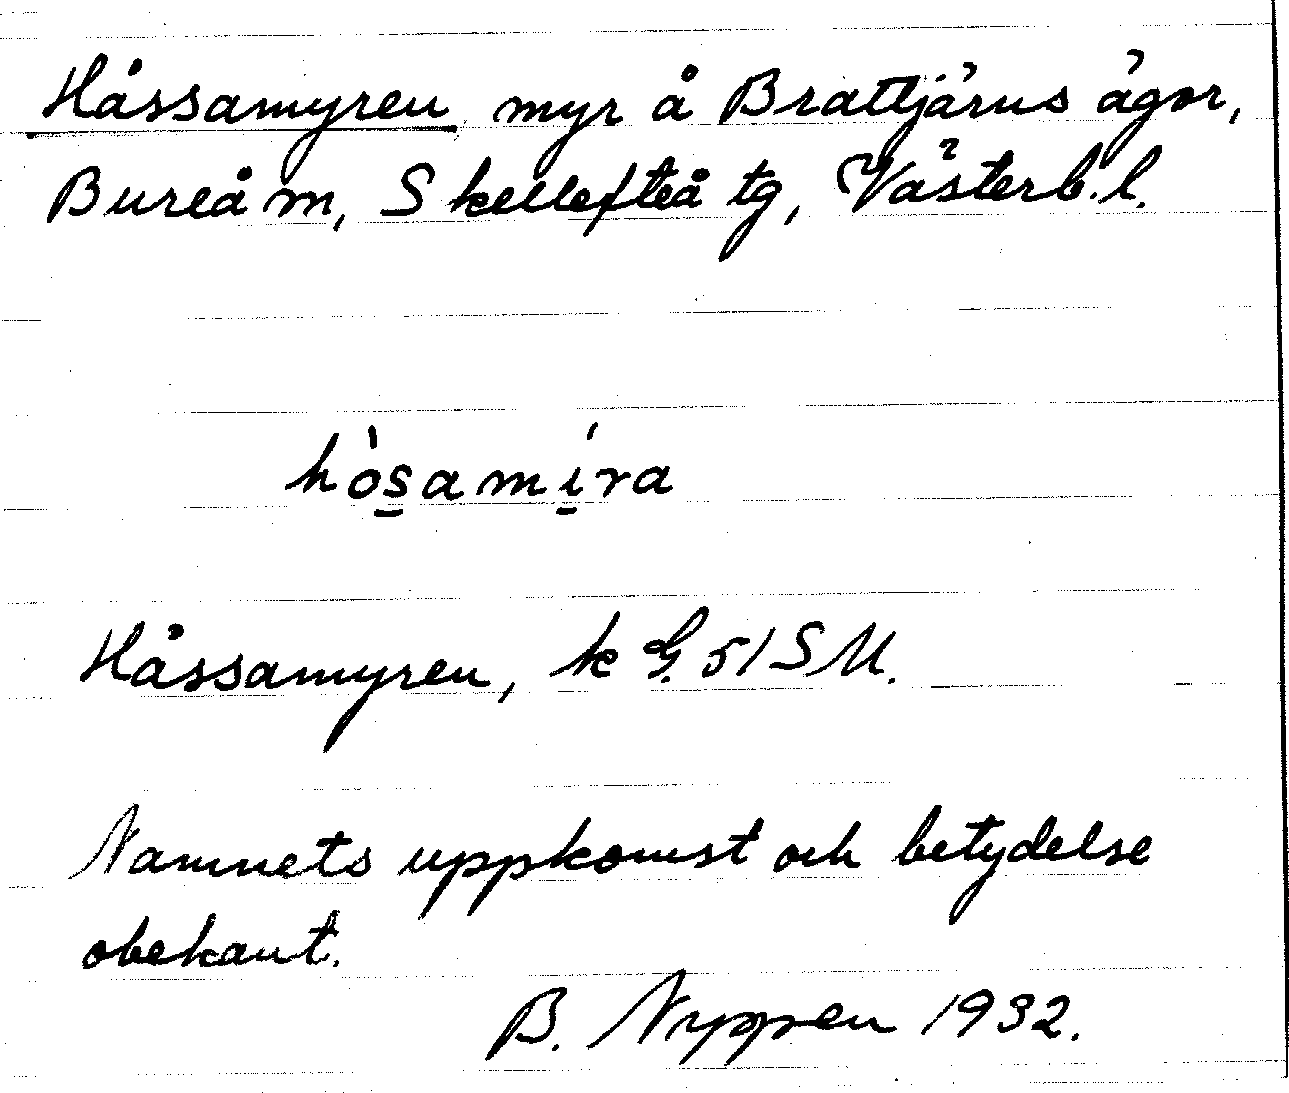 Håssamyren myr å Brattjärns ägor,
Bureå m, Skellefteå tg, Västerb. l.
hòs̱amí̱ra
Håssamyren, k G. 51 S M.
Namnets uppkomst och betydelse
obekant.
B. Nyppen 1932.